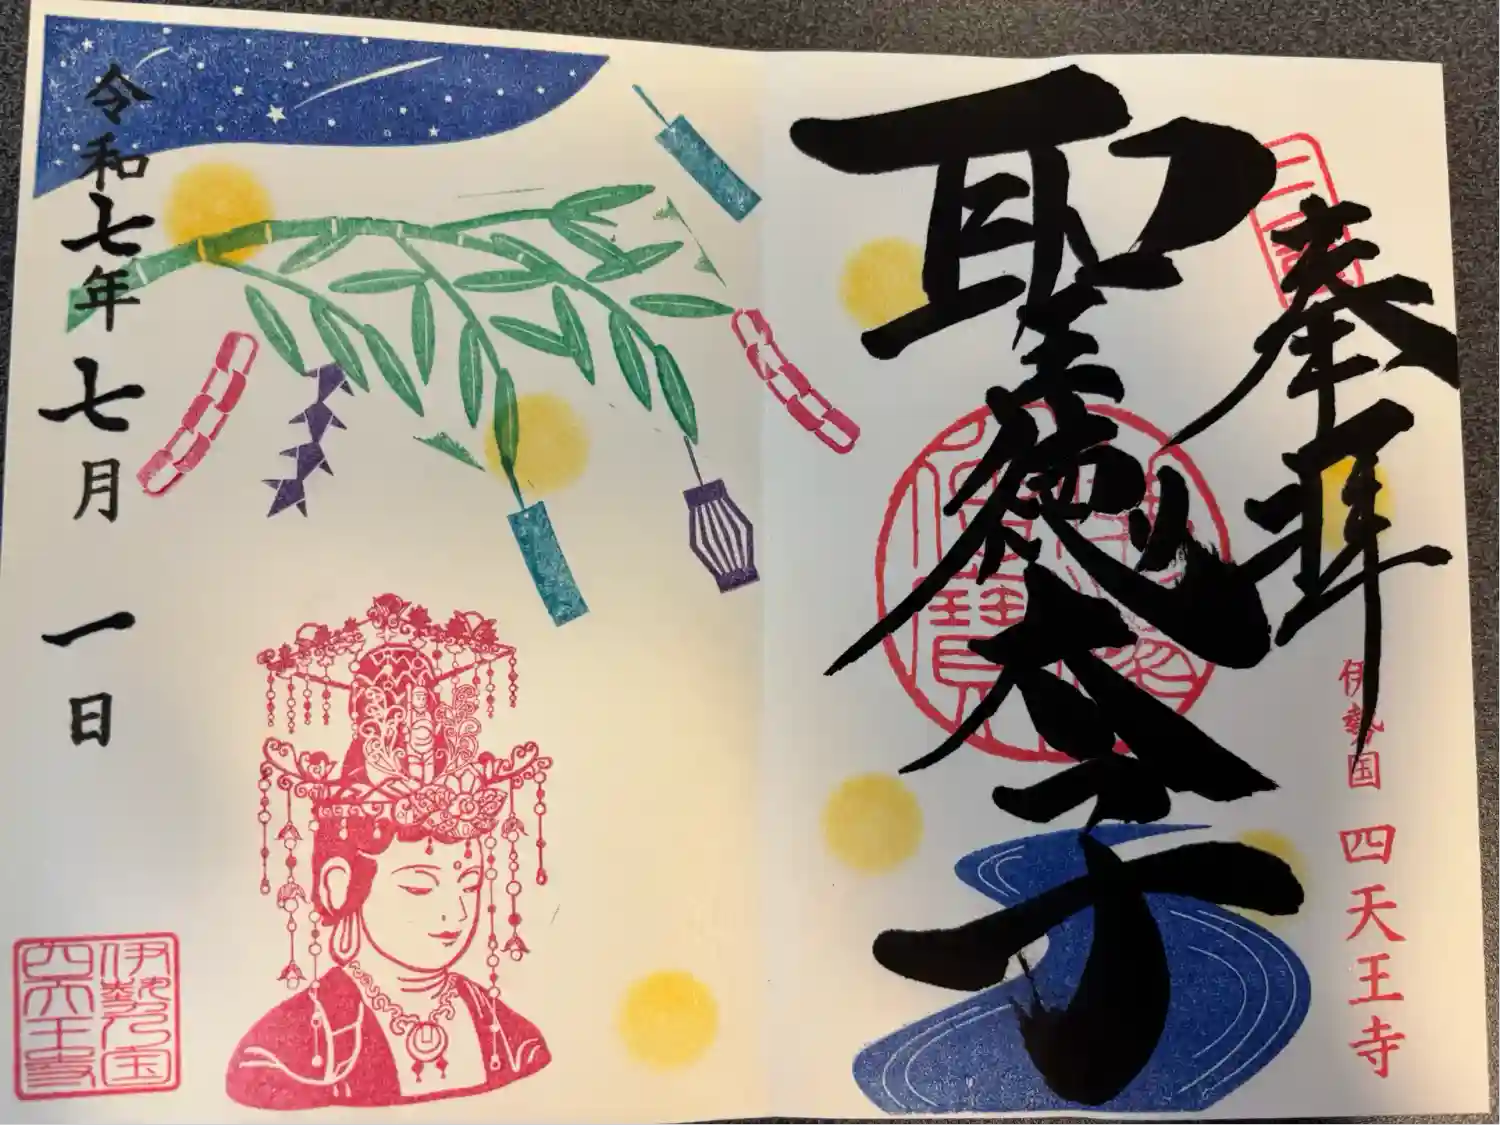 奉拝
聖徳太子
伊勢国 四天王寺
佛法僧寶
令和七年七月一日
伊勢国
四天王寺